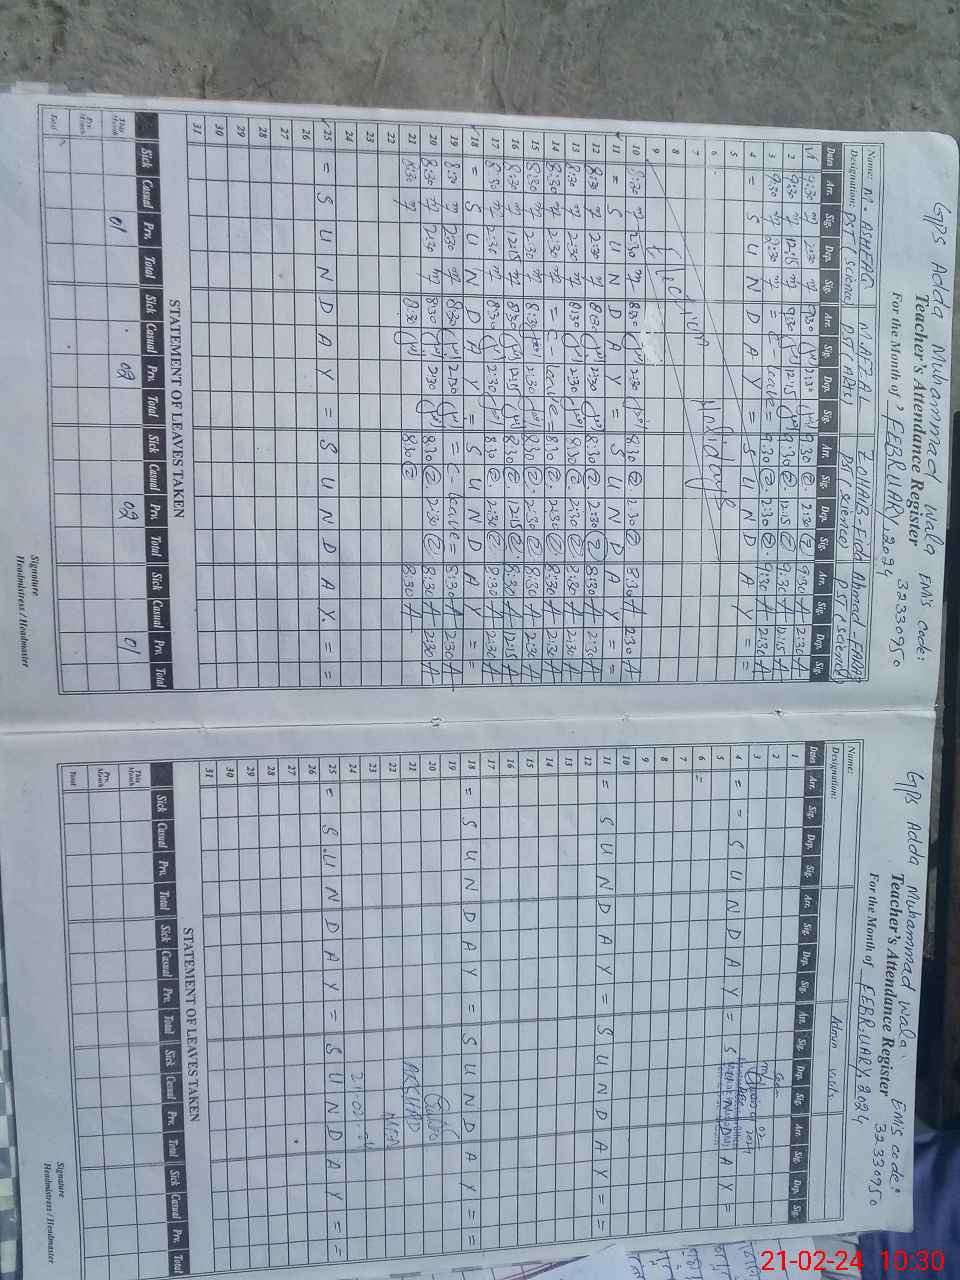 GPS Adda Muhammad Wala EMIS code:
Teacher's Attendance Register 32330950
For the Month of FEBRUARY, 2024
Name: M. ASHFAQ M. AFZAL ZOHAIB
Designation: PST Science PST (ARTS) PST (Science) PST (Science)
Dates Arr. Sig. Dep. Sig. Arr. Sig. Dep. Sig. Arr. Sig. Dep. Sig. Arr. Sig. Dep. Sig.
1 9:30 2:30 9:30 2:30 9:30 2:30 9:30 2:30
2 9:30 12:15 9:30 12:15 9:30 12:15 9:30 12:15
3 9:30 2:30 = C-leave = 9:30 2:30 9:30 2:30
4 = S U N D A Y = S U N D A Y = =
5
6
7 Election Holidays
8
9
10 8:30 2:30 8:30 2:30 8:30 2:30 8:30 2:30
11 = S U N D A Y = S U N D A Y = =
12 8:30 2:30 8:30 2:30 8:30 2:30 8:30 2:30
13 8:30 2:30 8:30 2:30 8:30 2:30 8:30 2:30
14 8:30 2:30 = C-leave = 8:30 2:30 8:30 2:30
15 8:30 2:30 8:30 2:30 8:30 2:30 8:30 2:30
16 8:30 12:15 8:30 12:15 8:30 12:15 8:30 12:15
17 8:30 2:30 8:30 2:30 8:30 2:30 8:30 2:30
18 = S U N D A Y = S U N D A Y = =
19 8:30 2:30 8:30 2:30 = C-leave = 8:30 2:30
20 8:30 2:30 8:30 2:30 8:30 2:30 8:30 2:30
21 8:30 8:30 8:30 8:30
22
23
24
25 = S U N D A Y = S U N D A Y = =
26
27
28
29
30
31
STATEMENT OF LEAVES TAKEN
Sick Casual Prv. Total Sick Casual Prv. Total Sick Casual Prv. Total Sick Casual Prv. Total
This Month 01 02 02 01
Prv. Month
Total
Signature
Headmistress / Headmaster
GPS Adda Muhammad Wala EMIS code:
Teacher's Attendance Register 32330950
For the Month of FEBRUARY, 2024
Name:
Designation: Admin visits
Dates Arr. Sig. Dep. Sig. Arr. Sig. Dep. Sig. Arr. Sig. Dep. Sig. Arr. Sig. Dep. Sig.
1
2
3
4 = = S U N D A Y = S U N D A Y =
5
6
7
8
9
10
11 = S U N D A Y = S U N D A Y = =
12
13
14
15
16
17
18 = S U N D A Y = S U N D A Y = =
19
20
21 ARSHAD
22
23
24
25 = S U N D A Y = S U N D A Y = =
26
27
28
29
30
31
STATEMENT OF LEAVES TAKEN
Sick Casual Prv. Total Sick Casual Prv. Total Sick Casual Prv. Total Sick Casual Prv. Total
This Month
Prv. Month
Total
Signature
Headmistress / Headmaster
21-02-24 10:30